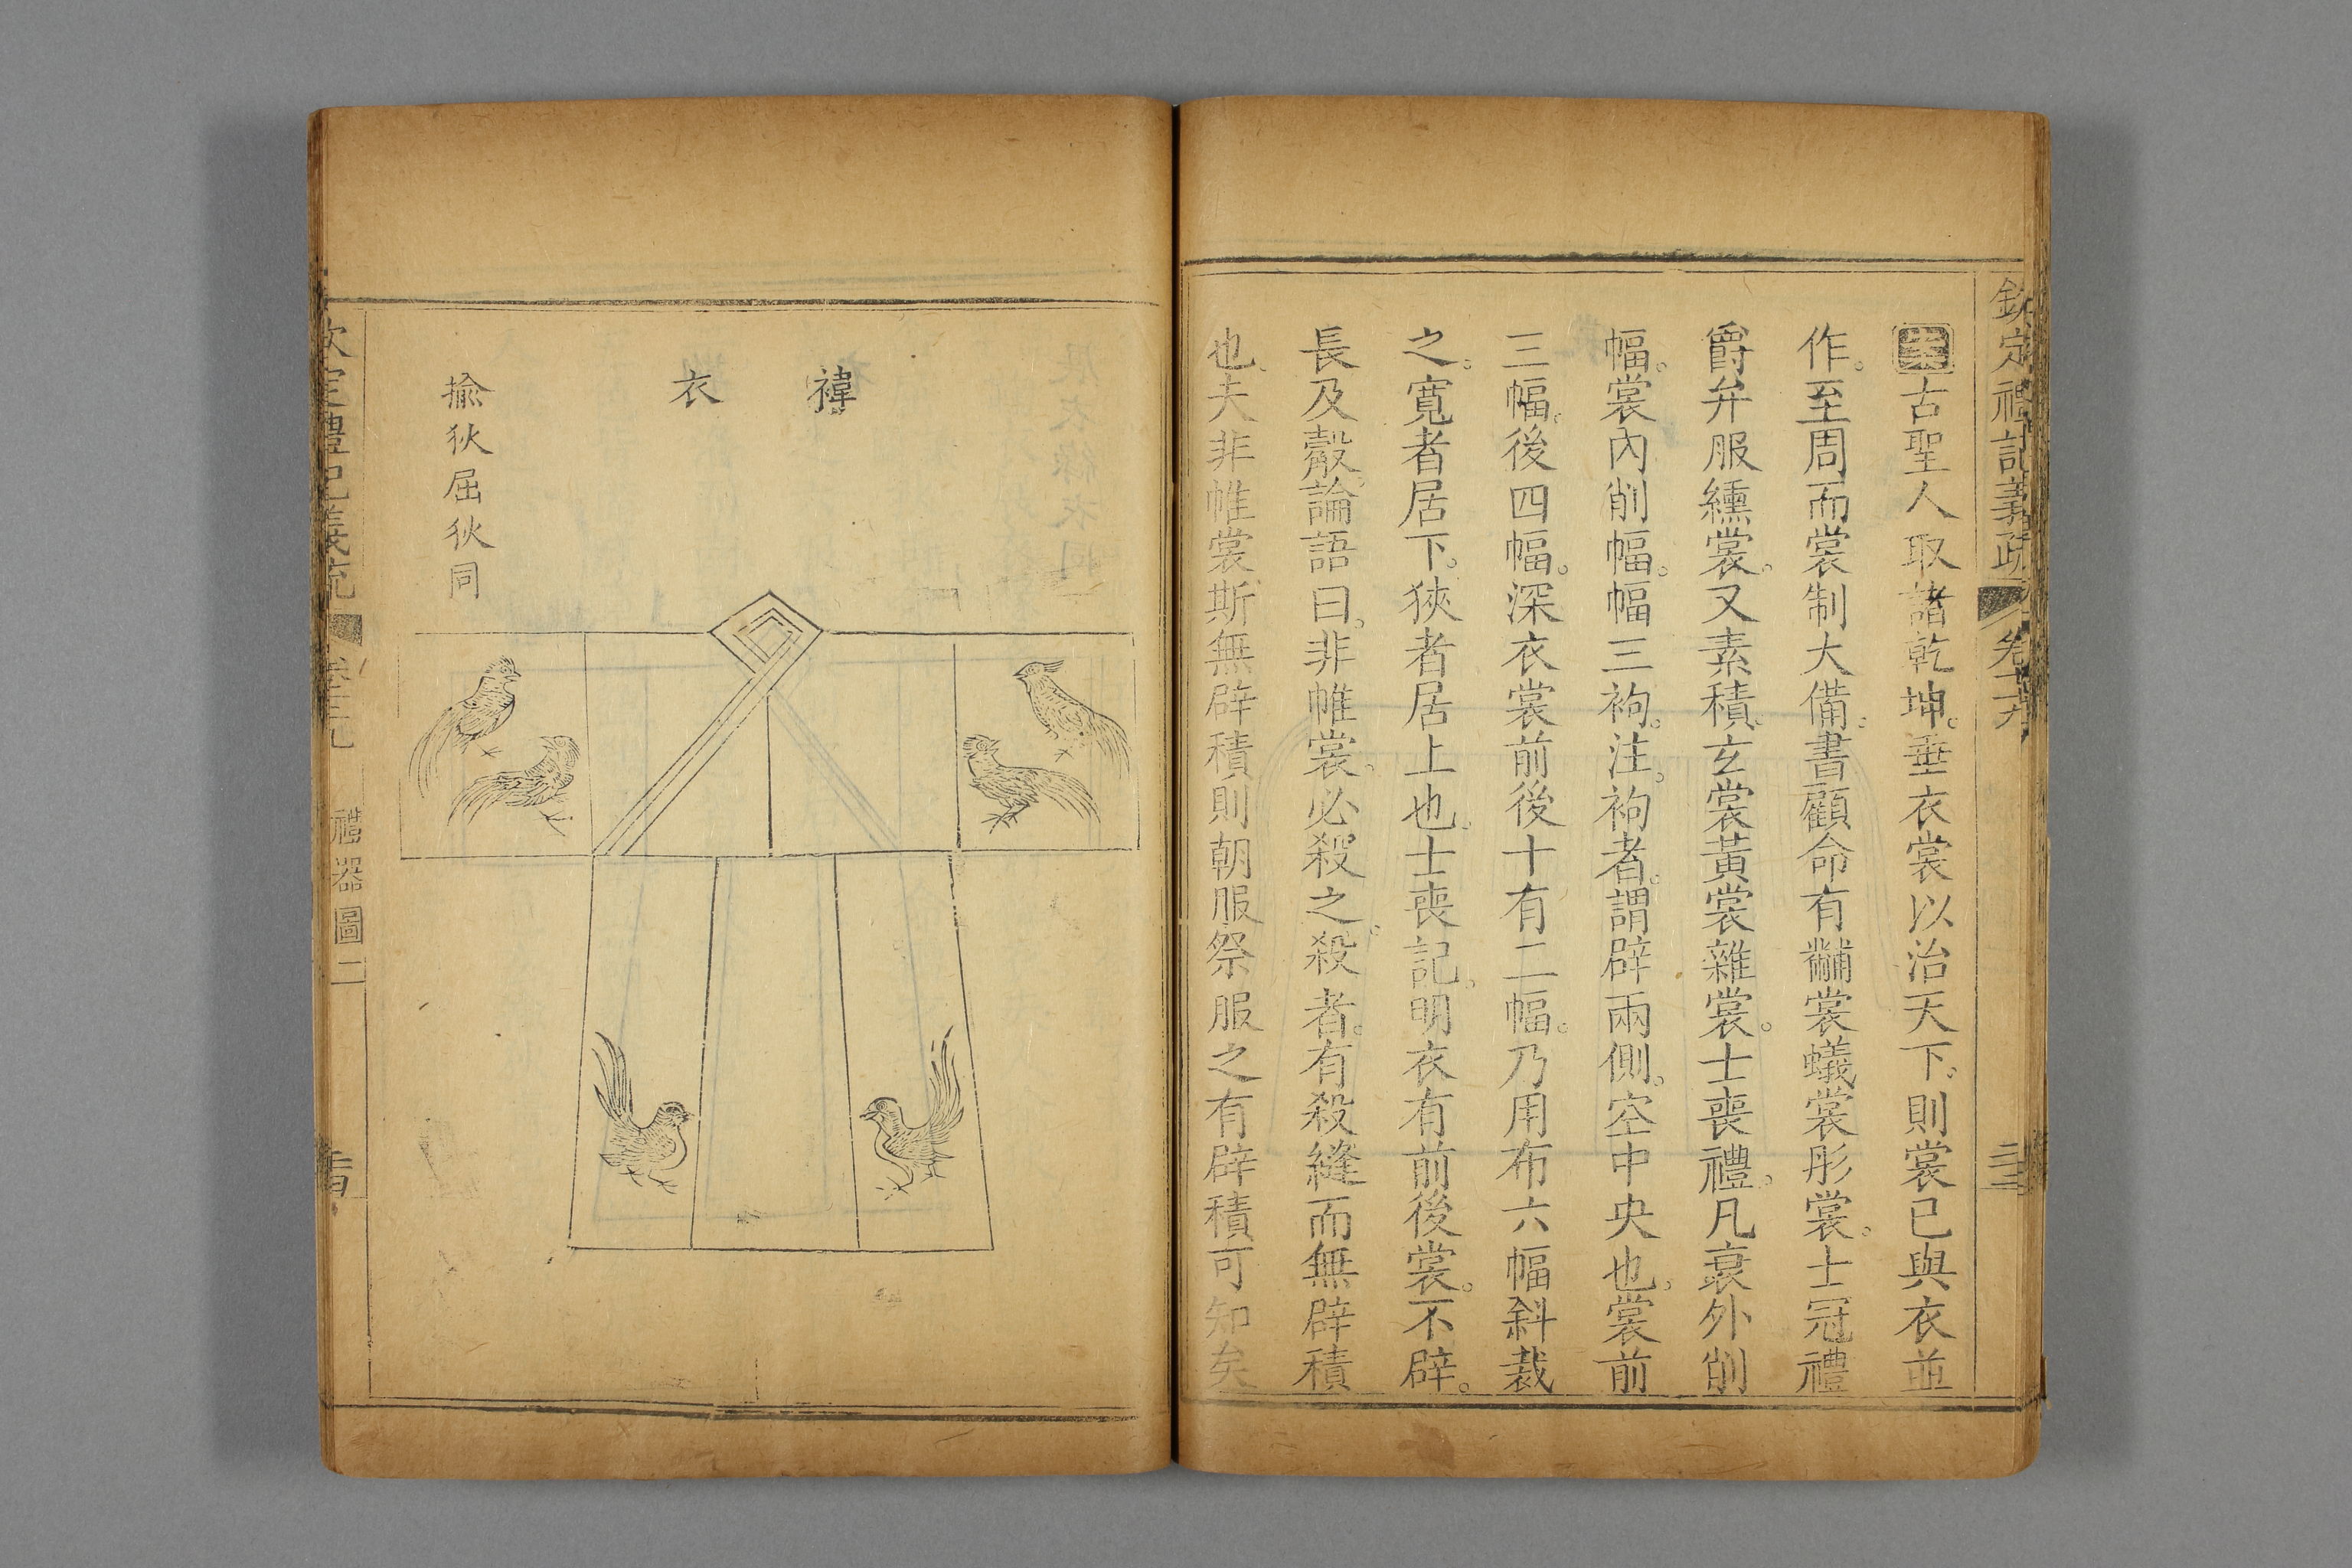 欽定禮記義疏
古聖人取諸乾坤。垂衣裳以治天下。則裳已與衣並
作。至周而裳制大備。書顧命有黼裳蟻裳彤裳。士冠禮
爵弁服纁裳。又素積玄裳黃裳雜裳。士喪禮。凡衰外削
幅。裳內削幅。幅三袧。注。袧者。謂辟兩側。空中央也。裳前
三幅。後四幅。深衣裳前後十有二幅。乃用布六幅斜裁
之。寬者居下。狹者居上也。士喪記。明衣有前後裳。不辟。
長及觳。論語曰。非帷裳。必殺之。殺者。有殺縫而無辟積
也。夫非帷裳斯無辟積則朝服祭服之有辟積可知矣
褘衣
揄狄屈狄同
禮器圖二